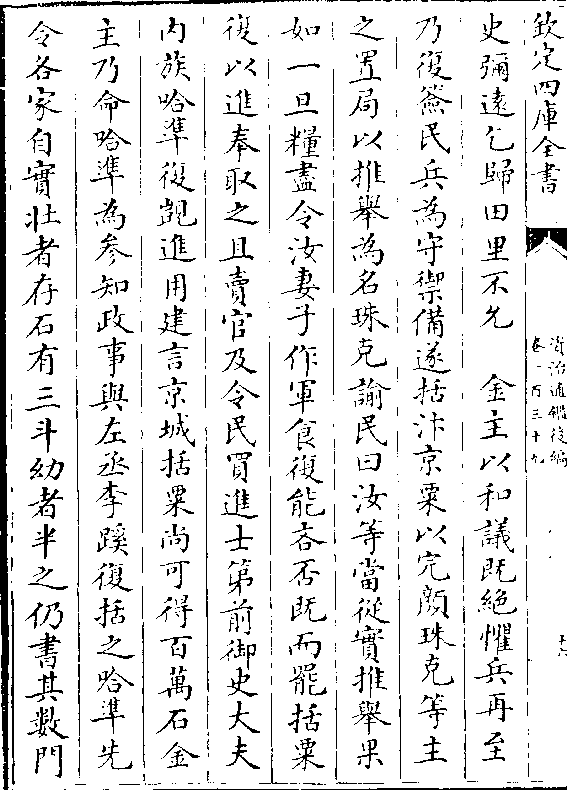 欽定四庫全書
資治通鑑後編
卷一百三十九
十六
史彌遠乞歸田里不允　金主以和議既絶懼兵再至
乃復簽民兵為守禦備遂括汴京粟以完顔珠克等主
之置局以推舉為名珠克諭民曰汝等當從實推舉果
如一旦糧盡令汝妻子作軍食復能吝否既而罷括粟
復以進奉取之且賣官及令民買進士第前御史大夫
内族哈準復覬進用建言京城括粟尚可得百萬石金
主乃命哈準為參知政事與左丞李蹊復括之哈準先
令各家自實壯者存石有三斗幼者半之仍書其數門